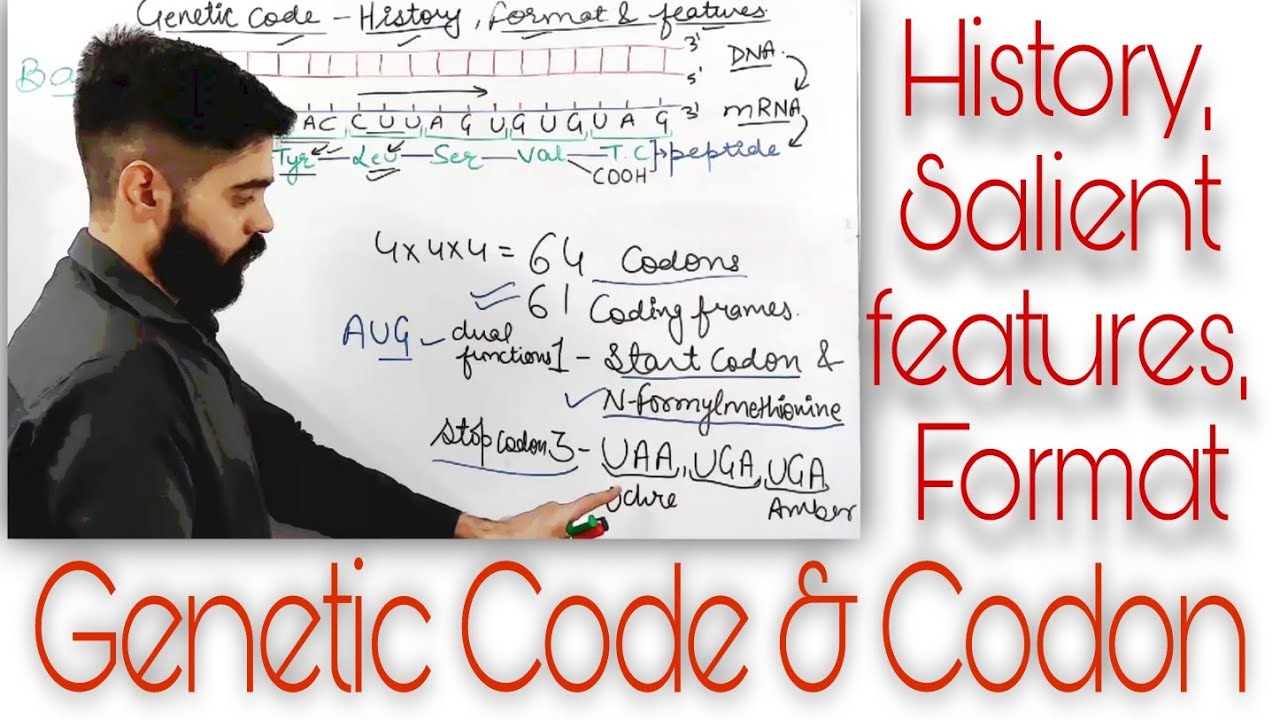 Genetic Code - History, Format & features
3'
DNA
5'
Ba
A C C U U A G U G U G U A G 3'
mRNA
Tyr - Leu - Ser - Val - T.C peptide
COOH
4x4x4 = 64 Codons
61 Coding frames.
AUG - dual functions 1 - Start Codon &
N-formylmethionine
Stop codon 3 - UAA, UGA, UGA
Ochre
Amber
History,
Salient
features,
Format
Genetic Code & Codon